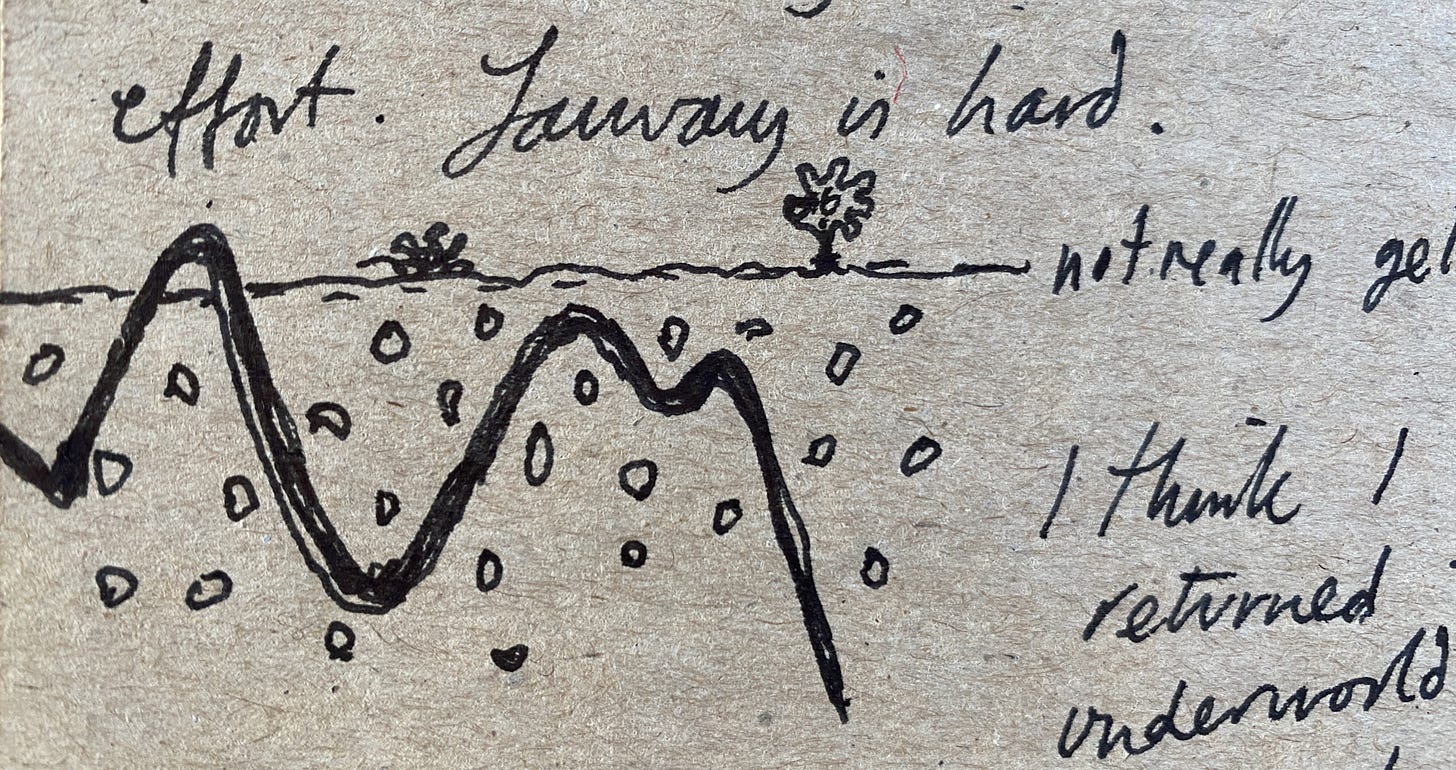 effort. January is hard.
not really gel
I think I
returned
underworld